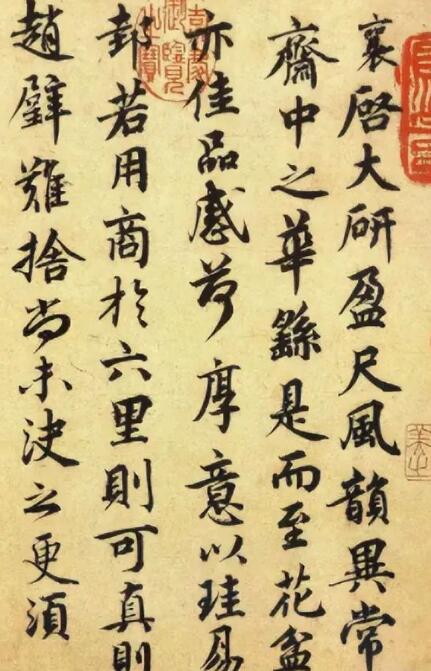 襄啓大研盈尺風韻異常
齋中之華繇是而至花盆
亦佳品感荷厚意以珪易
邾若用商於六里則可真則
趙璧難捨尚未決之更須
嘉慶御覽之寶